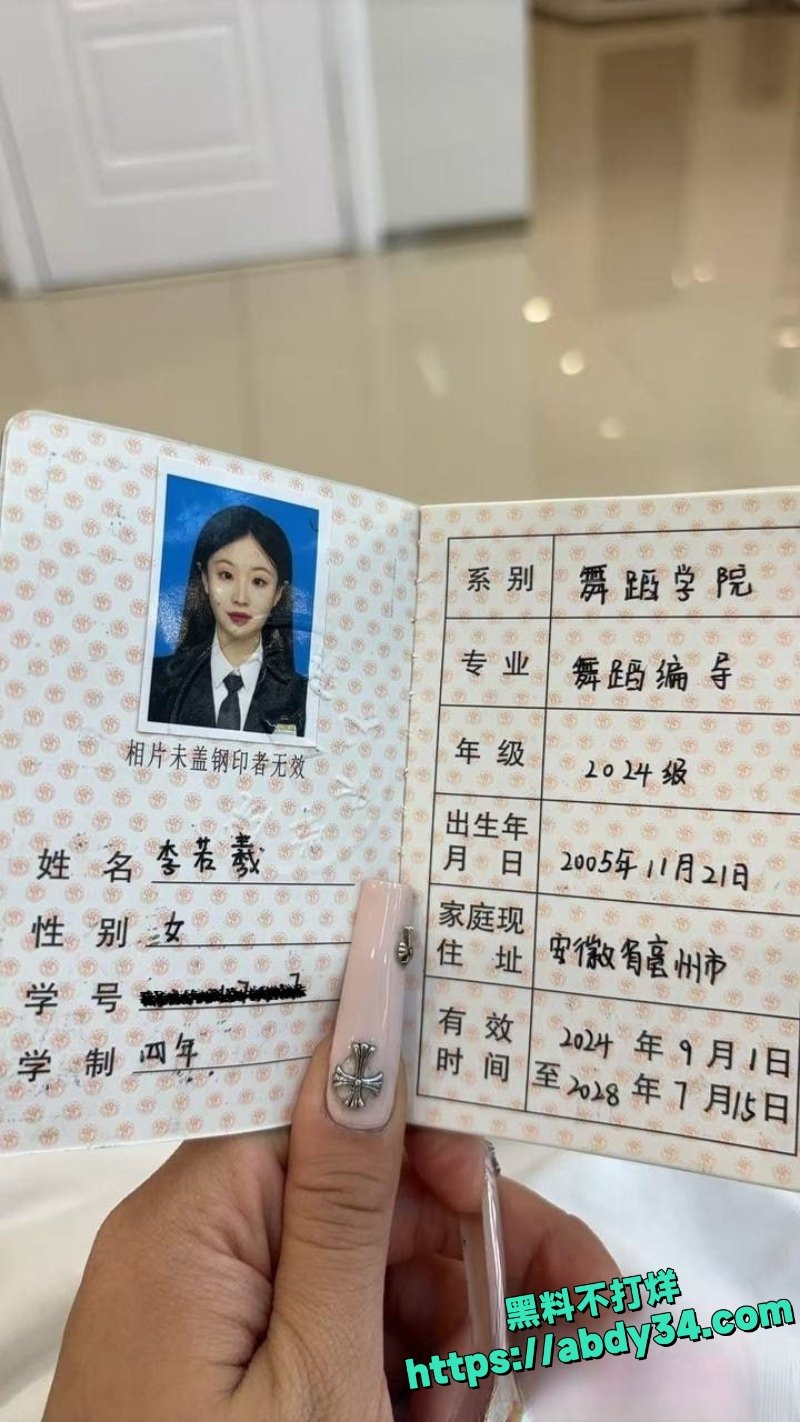 相片未盖钢印者无效
姓 名 李若羲
性 别 女
学 号
学 制 四年
系 别 舞蹈学院
专 业 舞蹈编导
年 级 2024级
出生年月 日 2005年11月21日
家庭现住 址 安徽省亳州市
有 效时 间 2024年9月1日
至2028年7月15日
黑料不打烊
https://abdy34.com